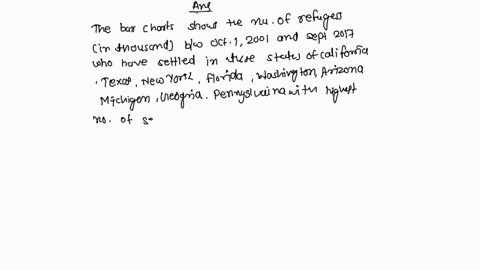 Ans
The bar charts shows the nu. of refugees
(in thousand) b/w Oct. 1, 2001 and sept 2017
who have settled in these states of california
, Texas, New York, Florida, Washington, Arizona
Michigon, Geogria. Pennyslvaina with highest
no. of s